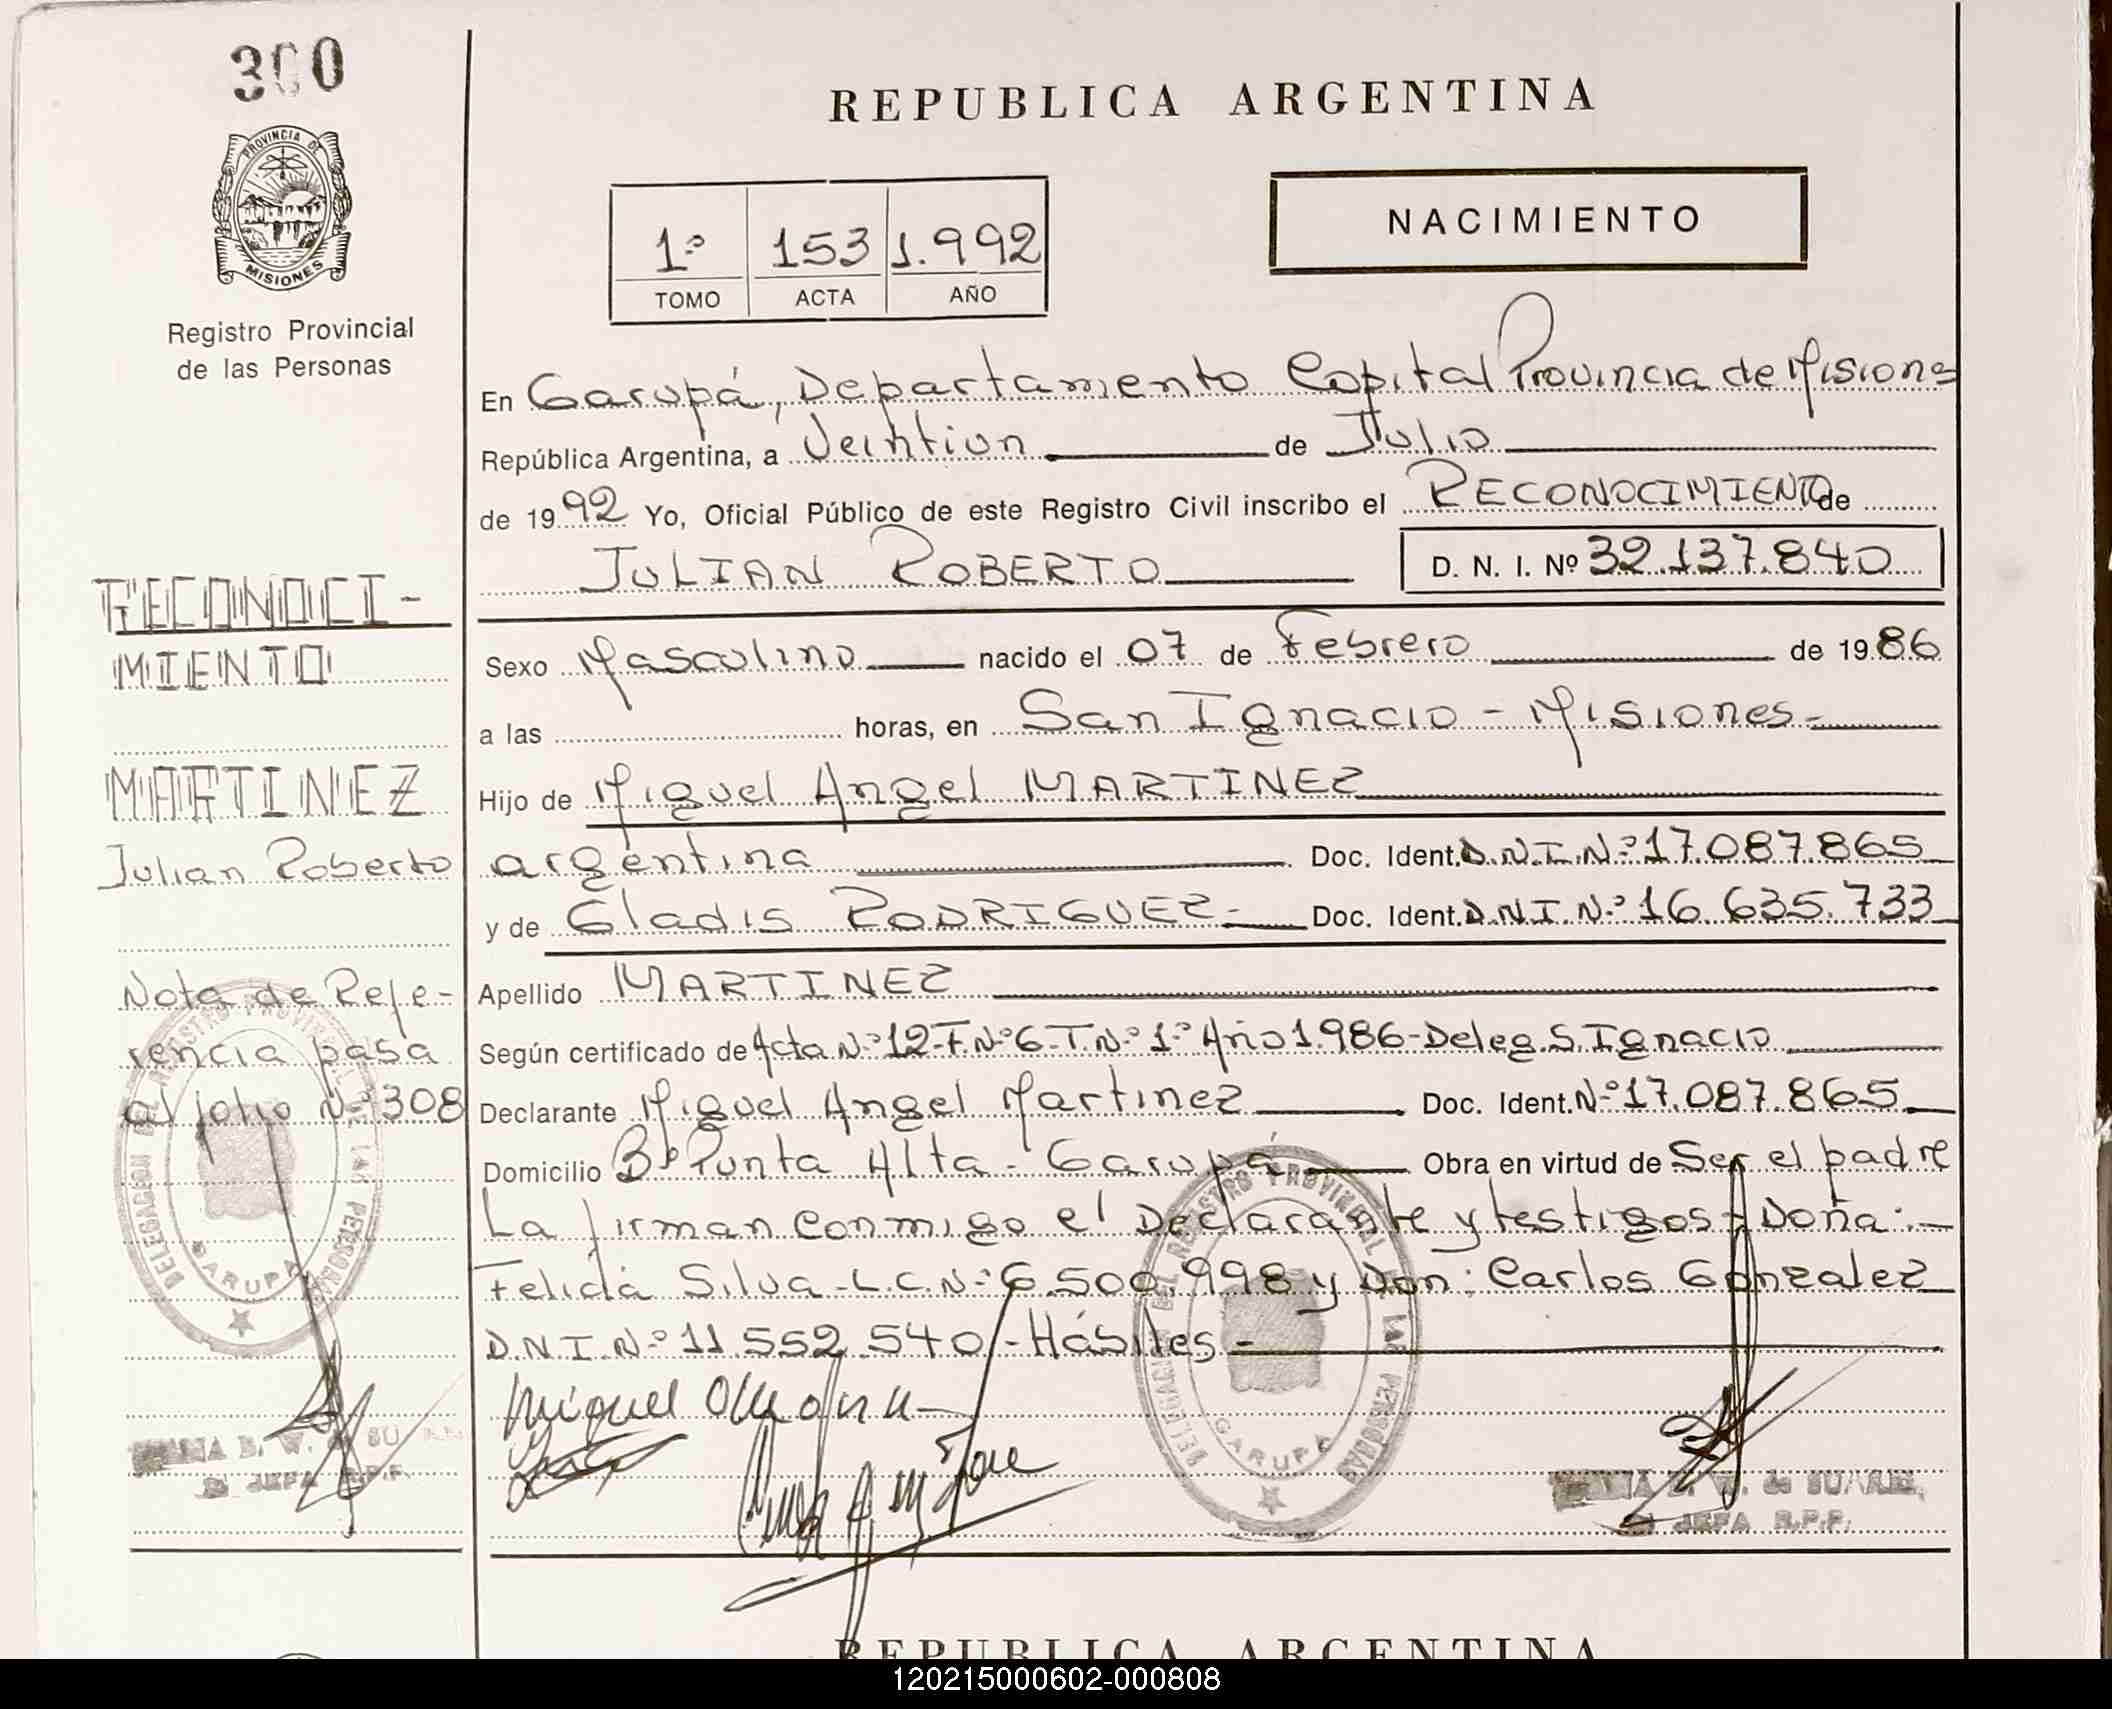 300
PROVINCIA DE
MISIONES
Registro Provincial
de las Personas
REPUBLICA ARGENTINA
1º 153 1.992
TOMO ACTA AÑO
NACIMIENTO
En Garupá, Departamento Capital Provincia de Misiones
República Argentina, a Veintiun de Julio
de 1992 Yo, Oficial Público de este Registro Civil inscribo el RECONOCIMIENTO de
JULIAN ROBERTO D. N. I. Nº 32.137.840
Sexo Masculino nacido el 07 de Febrero de 1986
a las horas, en San Ignacio - Misiones-
Hijo de Miguel Angel MARTINEZ
argentina Doc. Ident. D.N.I.Nº 17.087.865
y de Gladis RODRIGUEZ- Doc. Ident. D.N.I.Nº 16.635.733
Apellido MARTINEZ
Según certificado de Acta Nº 12-F.Nº 6-T.Nº 1º Año 1.986-Deleg.S.Ignacio
Declarante Miguel Angel Martinez Doc. Ident. Nº 17.087.865
Domicilio Bº Punta Alta - Garupá Obra en virtud de Ser el padre
La firman conmigo el Declarante y testigos - Doña:-
Felida Silva-L.C.Nº 6.500.998 y Don: Carlos Gonzalez
D.N.I.Nº 11.552.540 - Hábiles-
RECONOCI-
MIENTO
MARTINEZ
Julian Roberto
Nota de Refe-
rencia pasa
al folio Nº 308
DELEGACION DEL REGISTRO PROVINCIAL DE LAS PERSONAS
GARUPA
B. W. de SU
JEFA R.P.P.
Miguel
DELEGACION DEL REGISTRO PROVINCIAL DE LAS PERSONAS
GARUPA
B. W. de SUAREZ
JEFA R.P.P.
REPUBLICA ARGENTINA
120215000602-000808